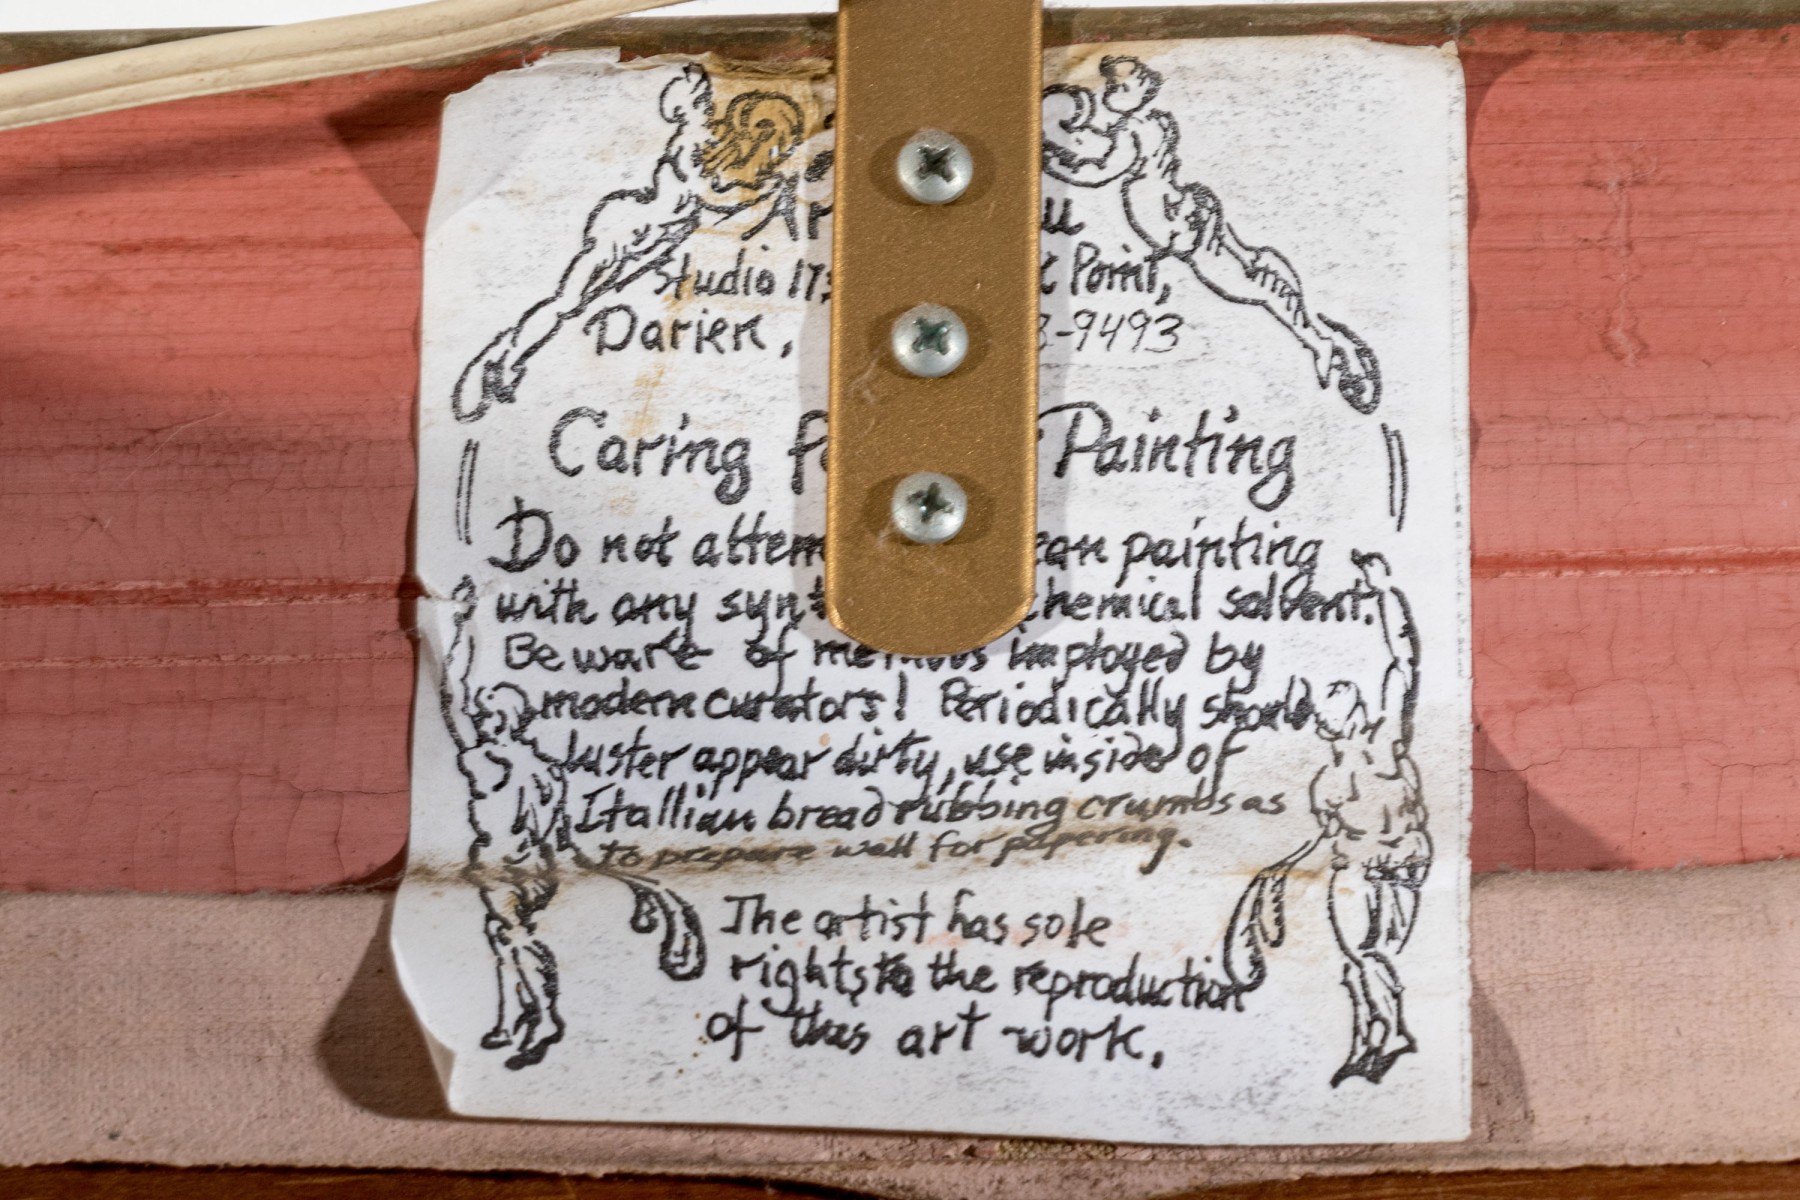 Ar u
Studio 17 Point,
Darien, 3-9493
Caring f Painting
Do not attem ean painting
with any synt chemical solvent.
Beware of methods imployed by
modern curators! Periodically should
luster appear dirty, use inside of
Itallian bread rubbing crumbs as
to prepare wall for papering.
The artist has sole
rights to the reproduction
of this art work.